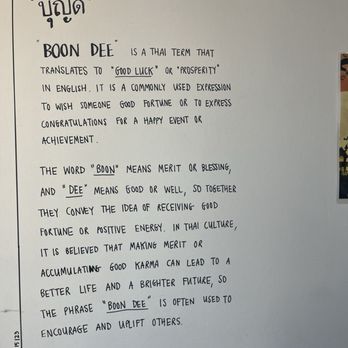 "บุญดี"
"BOON DEE" IS A THAI TERM THAT
TRANSLATES TO "GOOD LUCK" OR "PROSPERITY"
IN ENGLISH. IT IS A COMMONLY USED EXPRESSION
TO WISH SOMEONE GOOD FORTUNE OR TO EXPRESS
CONGRATULATIONS FOR A HAPPY EVENT OR
ACHIEVEMENT.
THE WORD "BOON" MEANS MERIT OR BLESSING,
AND "DEE" MEANS GOOD OR WELL, SO TOGETHER
THEY CONVEY THE IDEA OF RECEIVING GOOD
FORTUNE OR POSITIVE ENERGY. IN THAI CULTURE,
IT IS BELIEVED THAT MAKING MERIT OR
ACCUMULATING GOOD KARMA CAN LEAD TO A
BETTER LIFE AND A BRIGHTER FUTURE, SO
THE PHRASE "BOON DEE" IS OFTEN USED TO
ENCOURAGE AND UPLIFT OTHERS.